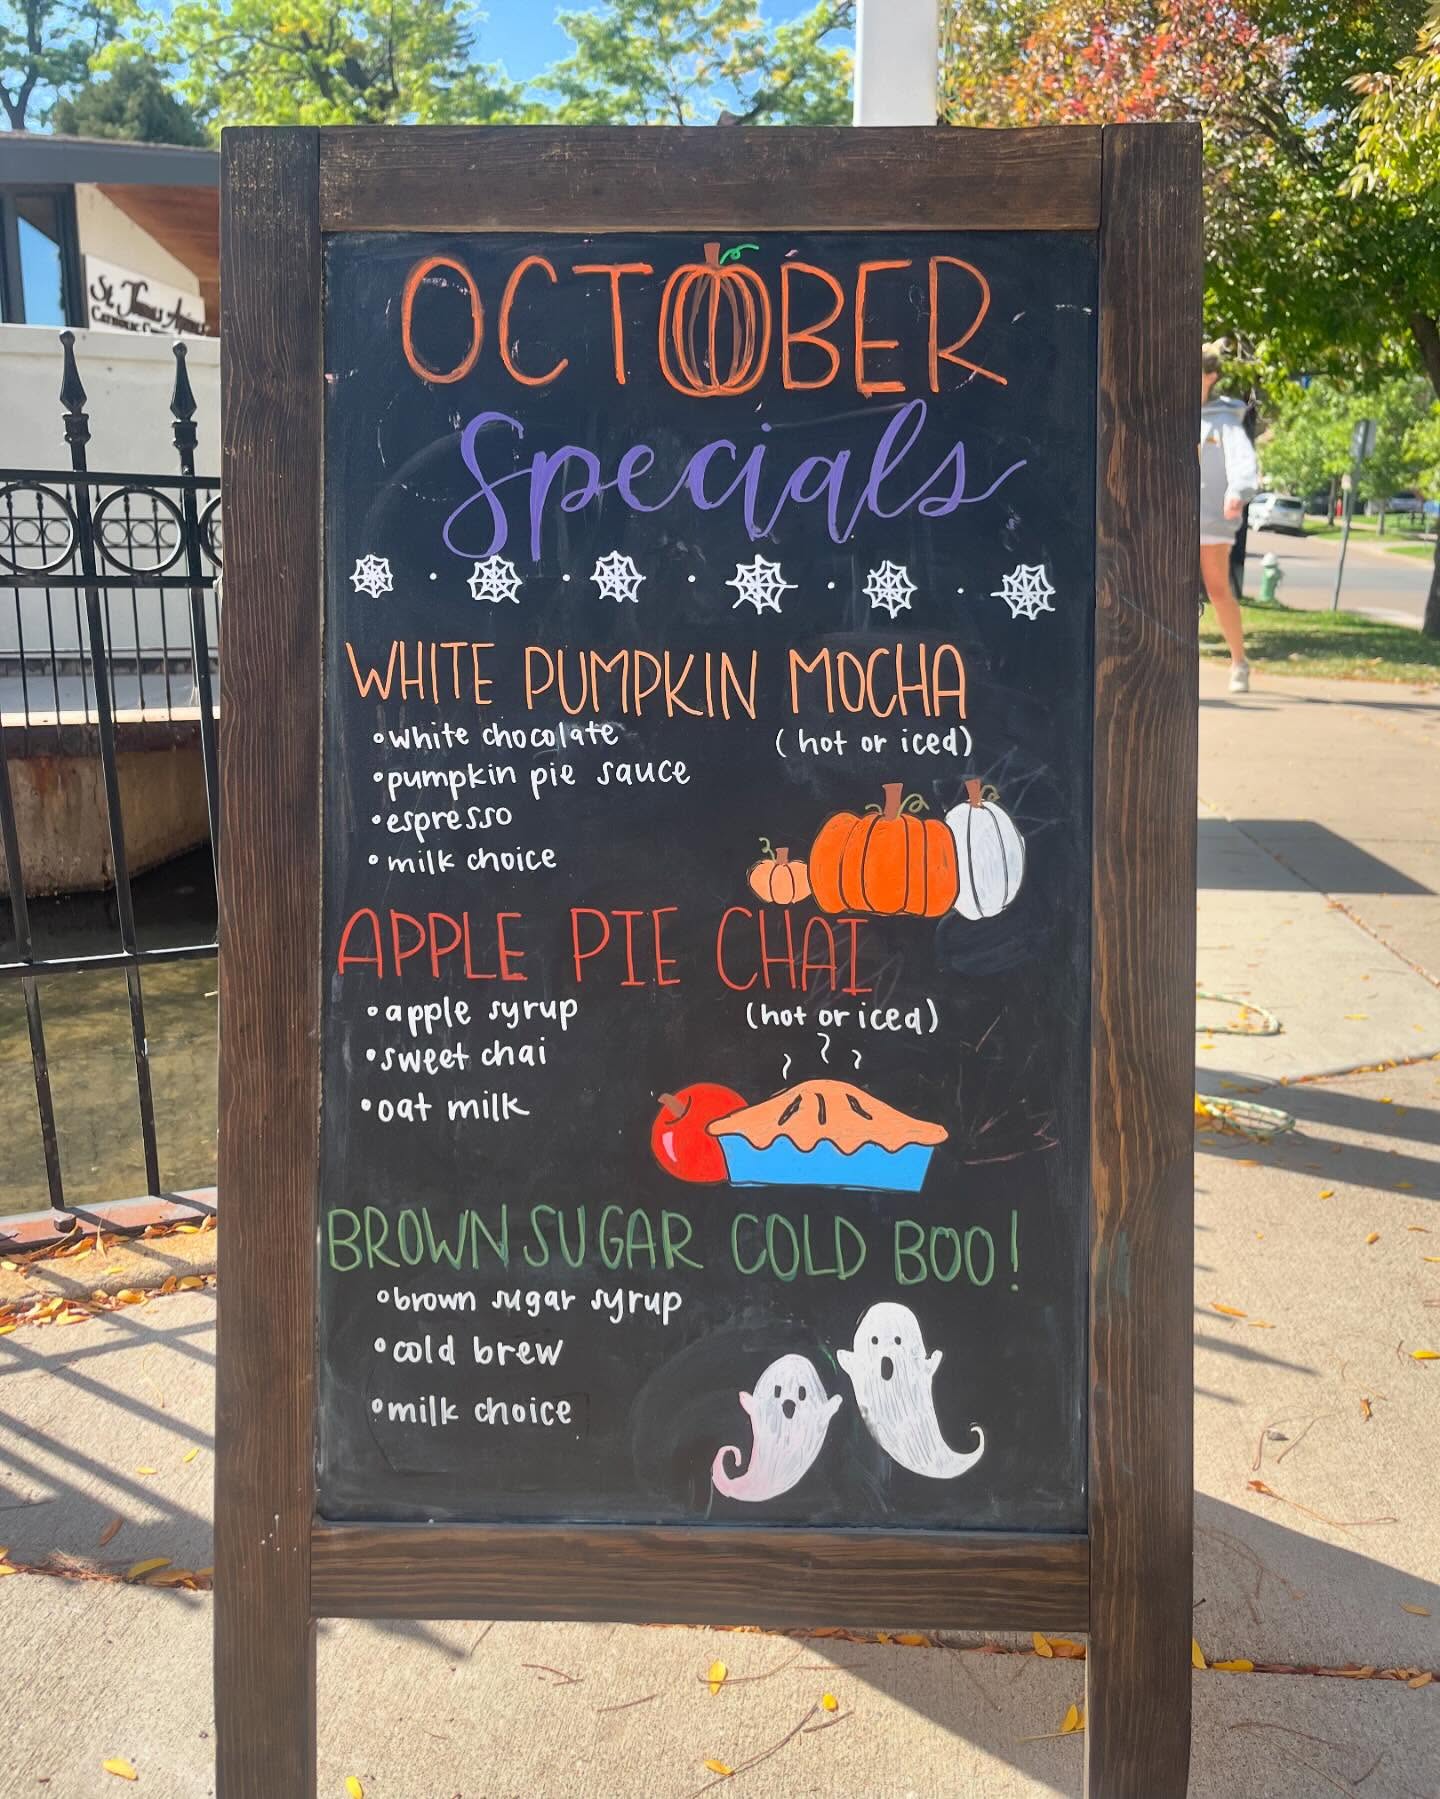 OCTOBER
Specials
WHITE PUMPKIN MOCHA
•white chocolate (hot or iced)
•pumpkin pie sauce
•espresso
•milk choice
APPLE PIE CHAI
•apple syrup (hot or iced)
•sweet chai
•oat milk
BROWN SUGAR COLD BOO!
•brown sugar syrup
•cold brew
•milk choice
St. Thomas Aquinas
CATHOLIC